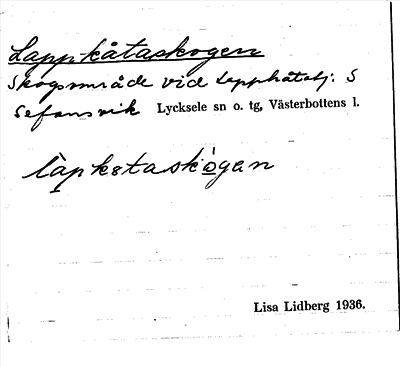 Lappkåtaskogen
Skogsområde vid Lappkåtabj. S
Sefansvik Lycksele sn o. tg, Västerbottens l.
làpkɛtaskógan
Lisa Lidberg 1936.